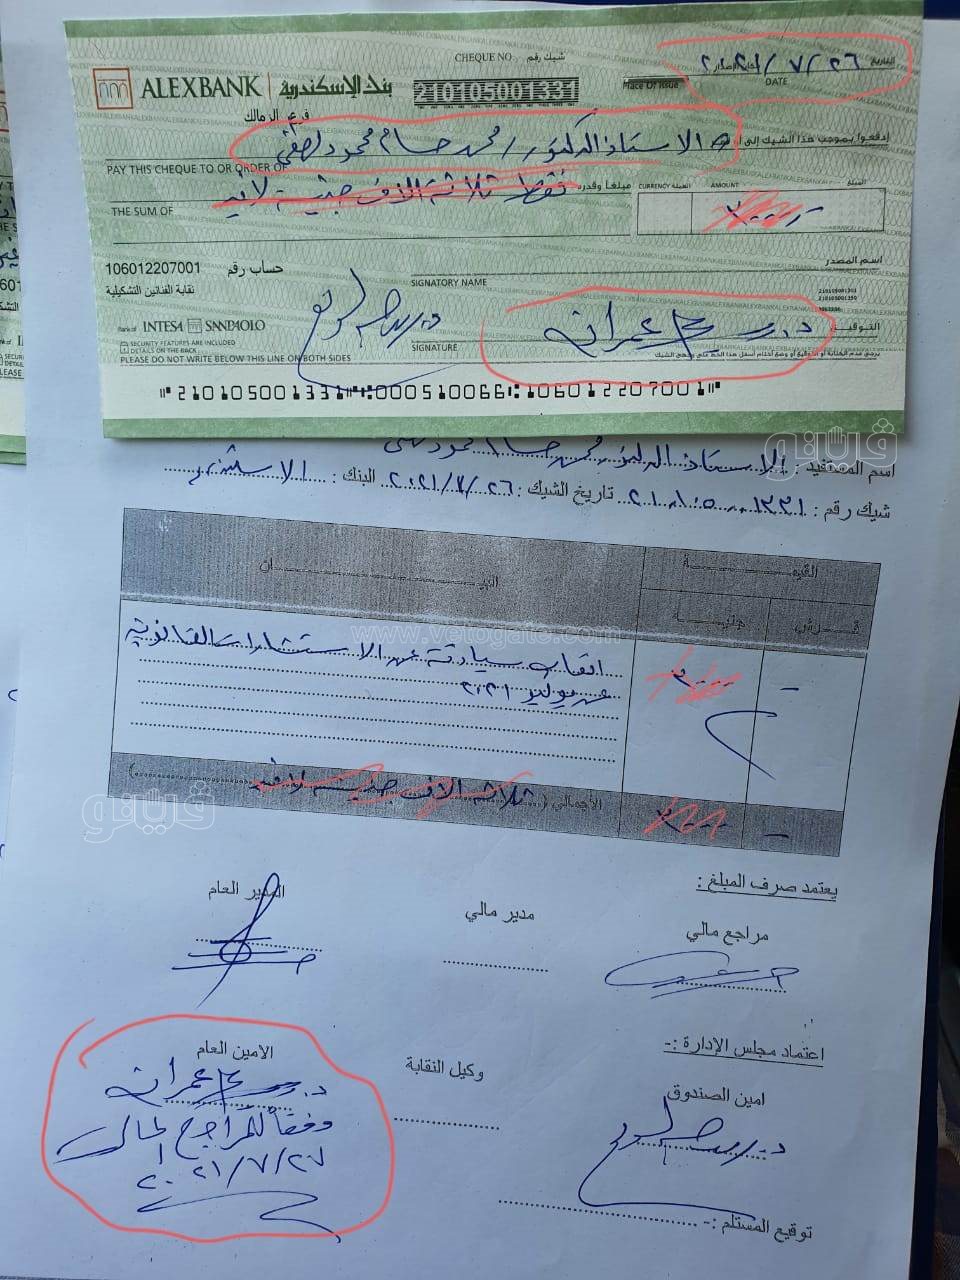 CHEQUE NO شيك رقم
ALEXBANK بنك الإسكندرية
210105001331
Place of Issue
التاريخ ٢٠٢١/٧/٢٦
DATE
فرع الزمالك
إدفعوا بموجب هذا الشيك إلى / الاستاذ الدكتور / محمد حسام محمود لطفى
PAY THIS CHEQUE TO OR ORDER OF
مبلغا وقدره فقط ثلاثة الاف جنيه لا غير
THE SUM OF
CURRENCY العملة AMOUNT المبلغ
٣٠٠٠
اسم المصدر
SIGNATORY NAME
106012207001 حساب رقم
نقابة الفنانين التشكيلية
210105001301
210105001350
التوقيع د. عمران
SIGNATURE
Bank of INTESA SANPAOLO
SECURITY FEATURES ARE INCLUDED
DETAILS ON THE BACK
PLEASE DO NOT WRITE BELOW THIS LINE ON BOTH SIDES
210105001331 000510066 106012207001
اسم المستفيد : الاستاذ الدكتور محمد حسام محمود لطفى
شيك رقم : ٢١٠١٠٥٠٠١٣٣١ تاريخ الشيك : ٢٠٢١/٧/٢٦ البنك :
القيمة
البيان
قرش جنيه
٣٠٠٠ -
اتعاب سيادته عن الاستشارات القانونية
عن يوليو ٢٠٢١
www.vetogate.com
الأجمالي ( ثلاثة الاف جنيه لا غير )
٣٠٠٠ -
ڤيتو
يعتمد صرف المبلغ :
مراجع مالي
مدير مالي
المدير العام
اعتماد مجلس الإدارة :-
امين الصندوق
وكيل النقابة
الامين العام
د. عمران
وفقاً للمراجع المالى
٢٠٢١/٧/٢٧
توقيع المستلم :-